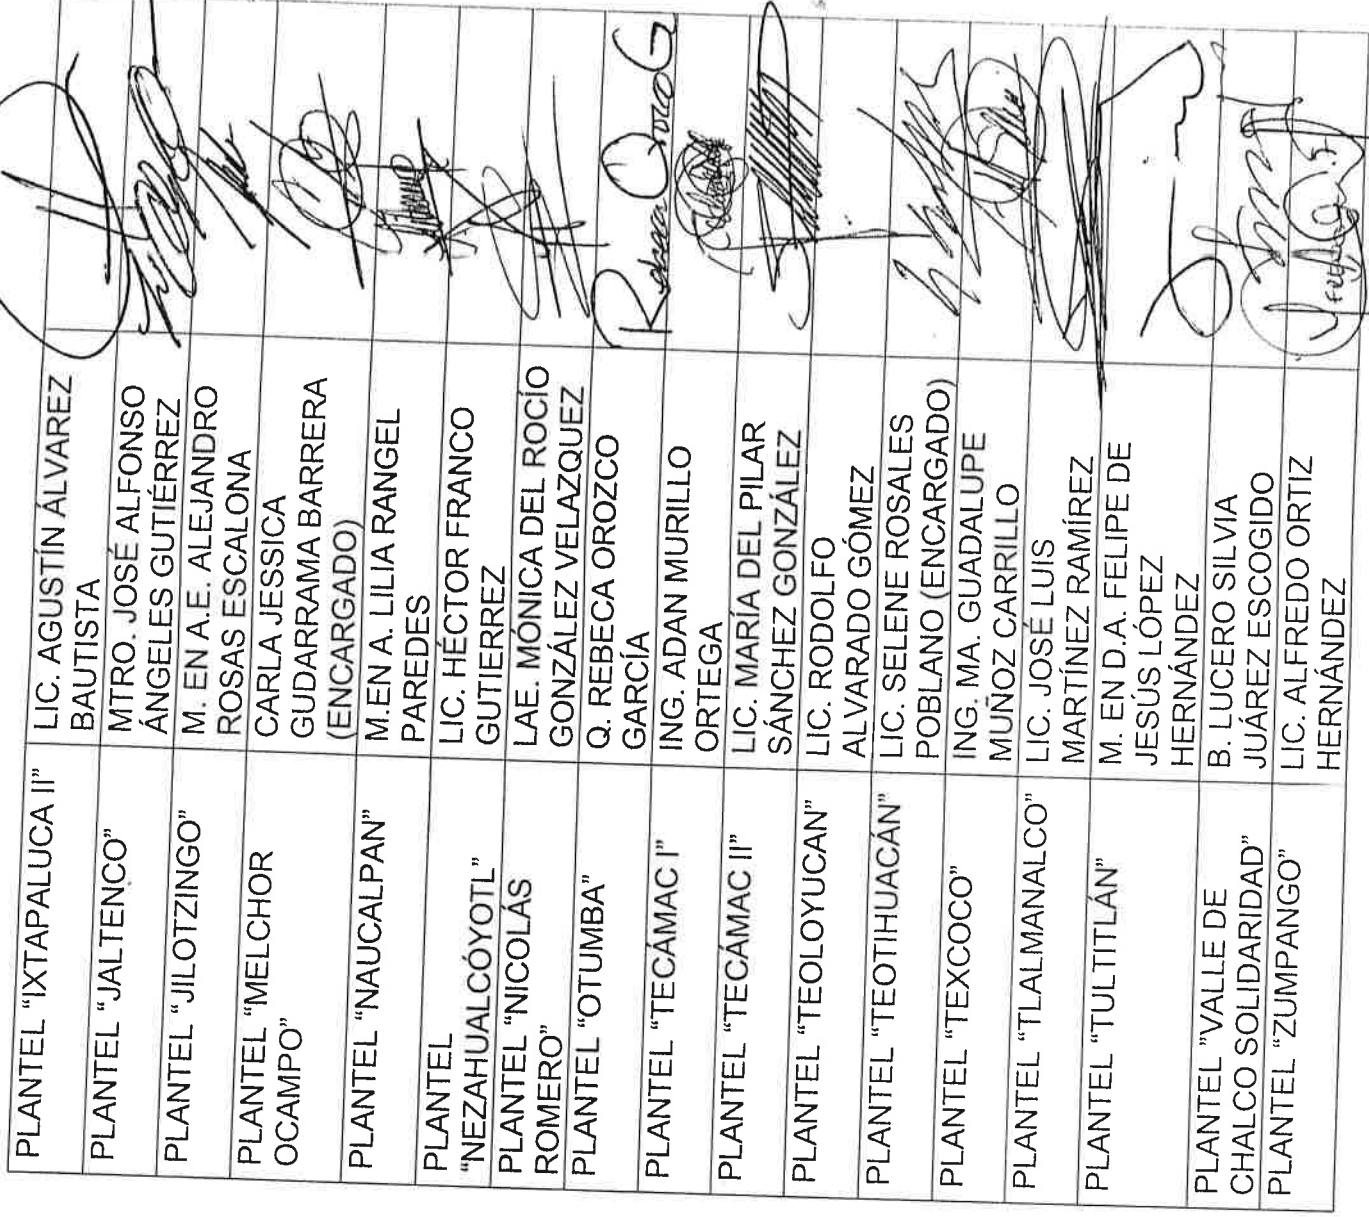 PLANTEL “IXTAPALUCA II”
LIC. AGUSTÍN ÁLVAREZ
BAUTISTA
PLANTEL “JALTENCO”
MTRO. JOSÉ ALFONSO
ÁNGELES GUTIÉRREZ
PLANTEL “JILOTZINGO”
M. EN A.E. ALEJANDRO
ROSAS ESCALONA
PLANTEL “MELCHOR
OCAMPO”
CARLA JESSICA
GUDARRAMA BARRERA
(ENCARGADO)
PLANTEL “NAUCALPAN”
M.EN A. LILIA RANGEL
PAREDES
PLANTEL
“NEZAHUALCÓYOTL”
LIC. HÉCTOR FRANCO
GUTIERREZ
PLANTEL “NICOLÁS
ROMERO”
LAE. MÓNICA DEL ROCÍO
GONZÁLEZ VELAZQUEZ
PLANTEL “OTUMBA”
Q. REBECA OROZCO
GARCÍA
Rebeca Orozco G
PLANTEL “TECÁMAC I”
ING. ADAN MURILLO
ORTEGA
PLANTEL “TECÁMAC II”
LIC. MARÍA DEL PILAR
SÁNCHEZ GONZÁLEZ
PLANTEL “TEOLOYUCAN”
LIC. RODOLFO
ALVARADO GÓMEZ
PLANTEL “TEOTIHUACÁN”
LIC. SELENE ROSALES
POBLANO (ENCARGADO)
PLANTEL “TEXCOCO”
ING. MA. GUADALUPE
MUÑOZ CARRILLO
PLANTEL “TLALMANALCO”
LIC. JOSÉ LUIS
MARTÍNEZ RAMÍREZ
PLANTEL “TULTITLÁN”
M. EN D.A. FELIPE DE
JESÚS LÓPEZ
HERNÁNDEZ
PLANTEL ”VALLE DE
CHALCO SOLIDARIDAD”
B. LUCERO SILVIA
JUÁREZ ESCOGIDO
PLANTEL “ZUMPANGO”
LIC. ALFREDO ORTIZ
HERNÁNDEZ